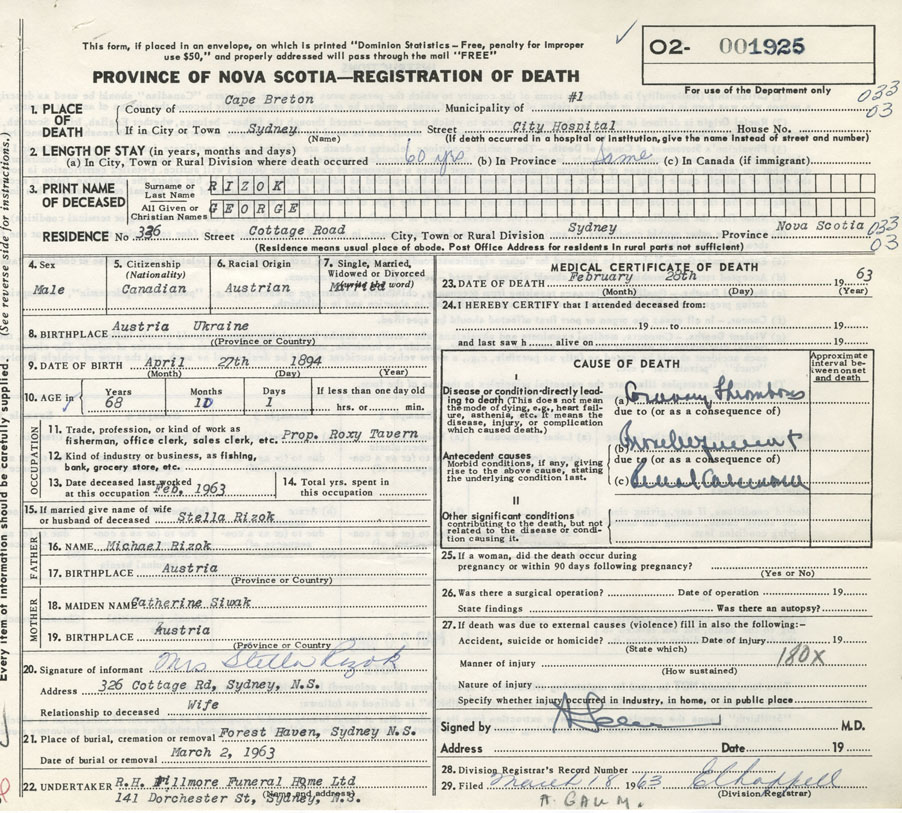 This form, if placed in an envelope, on which is printed "Dominion Statistics – Free, penalty for improper
use $50," and properly addressed will pass through the mail "FREE"
O2- 001925
For use of the Department only
PROVINCE OF NOVA SCOTIA—REGISTRATION OF DEATH
033
03
1. PLACE OF DEATH
County of Cape Breton Municipality of #1
If in City or Town Sydney Street City Hospital House No.
(Name) (If death occurred in a hospital or institution, give the name instead of street and number)
2. LENGTH OF STAY (in years, months and days)
(a) In City, Town or Rural Division where death occurred 60 yrs (b) In Province Same (c) In Canada (if immigrant)
3. PRINT NAME OF DECEASED
Surname or Last Name RIZOK
All Given or Christian Names GEORGE
RESIDENCE No. 326 Street Cottage Road City, Town or Rural Division Sydney Province Nova Scotia
(Residence means usual place of abode. Post Office Address for residents in rural parts not sufficient)
033
03
4. Sex
Male
5. Citizenship
(Nationality)
Canadian
6. Racial Origin
Austrian
7. Single, Married,
Widowed or Divorced
(write the word)
Married
8. BIRTHPLACE Austria Ukraine
(Province or Country)
9. DATE OF BIRTH April 27th 1894
(Month) (Day) (Year)
10. AGE in
Years Months Days If less than one day old
68 10 1 hrs. or min.
OCCUPATION
11. Trade, profession, or kind of work as
fisherman, office clerk, sales clerk, etc. Prop. Roxy Tavern
12. Kind of industry or business, as fishing,
bank, grocery store, etc.
13. Date deceased last worked
at this occupation Feb, 1963
14. Total yrs. spent in
this occupation
15. If married give name of wife
or husband of deceased Stella Rizok
FATHER
16. NAME Michael Rizok
17. BIRTHPLACE Austria
(Province or Country)
MOTHER
18. MAIDEN NAME Catherine Siwak
19. BIRTHPLACE Austria
(Province or Country)
20. Signature of informant Mrs Stella Rizok
Address 326 Cottage Rd, Sydney, N.S.
Relationship to deceased Wife
21. Place of burial, cremation or removal Forest Haven, Sydney N.S.
Date of burial or removal March 2, 1963
22. UNDERTAKER R.H. Fillmore Funeral Home Ltd
141 Dorchester St, Sydney, N.S.
(Name and address)
MEDICAL CERTIFICATE OF DEATH
23. DATE OF DEATH February 28th 19 63
(Month) (Day) (Year)
24. I HEREBY CERTIFY that I attended deceased from:
19 to 19
and last saw h alive on 19
CAUSE OF DEATH
Approximate interval between onset and death
I
Disease or condition directly leading to death (This does not mean
the mode of dying, e.g., heart failure,
asthenia, etc. It means the
disease, injury, or complication
which caused death.)
(a) Coronary Thrombosis
due to (or as a consequence of)
Antecedent causes
Morbid conditions, if any, giving
rise to the above cause, stating
the underlying condition last.
(b)
due to (or as a consequence of)
(c) Renal Carcinoma
II
Other significant conditions
contributing to the death, but not
related to the disease or condition
causing it.
25. If a woman, did the death occur during
pregnancy or within 90 days following pregnancy?
(Yes or No)
26. Was there a surgical operation? Date of operation 19
State findings Was there an autopsy?
27. If death was due to external causes (violence) fill in also the following:-
Accident, suicide or homicide? Date of injury 19
(State which)
180X
Manner of injury
(How sustained)
Nature of injury
Specify whether injury occurred in Industry, in home, or in public place
Signed by M.D.
Address Date 19
28. Division Registrar's Record Number
29. Filed March 18 1963
(Division Registrar)
Every item of information should be carefully supplied. (See reverse side for instructions.)